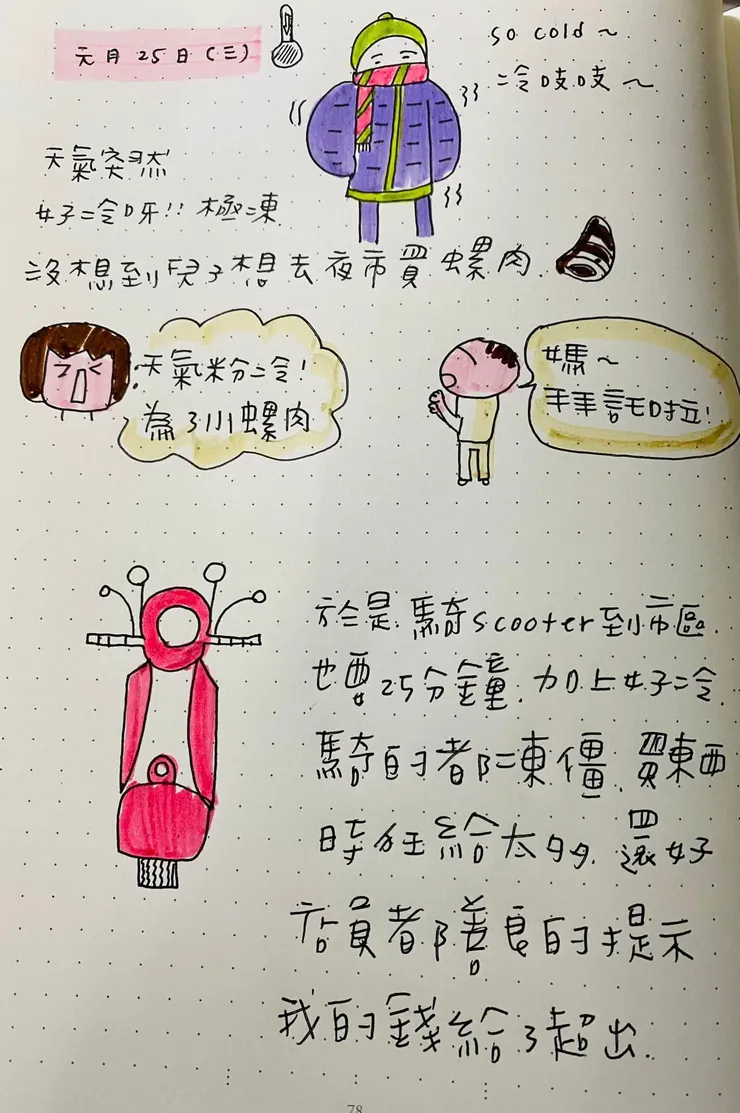 元月25日(三)
so cold~
冷吱吱~
天氣突然
好冷呀!! 極凍
沒想到兒子想去夜市買螺肉.
天氣粉冷!
為了小螺肉
媽~
拜託啦!
於是騎scooter到市區.
也要25分鐘.加上好冷.
騎的都凍僵.買東西
時狂給太多.還好
店員都善良的提示
我的錢給了超出.
78